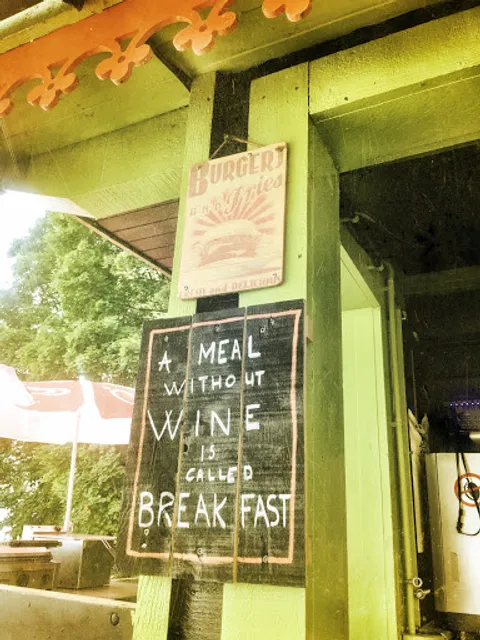 BURGERS
and Fries
FRESH and DELICIOUS
A MEAL
WITHOUT
WINE
IS
CALLED
BREAKFAST